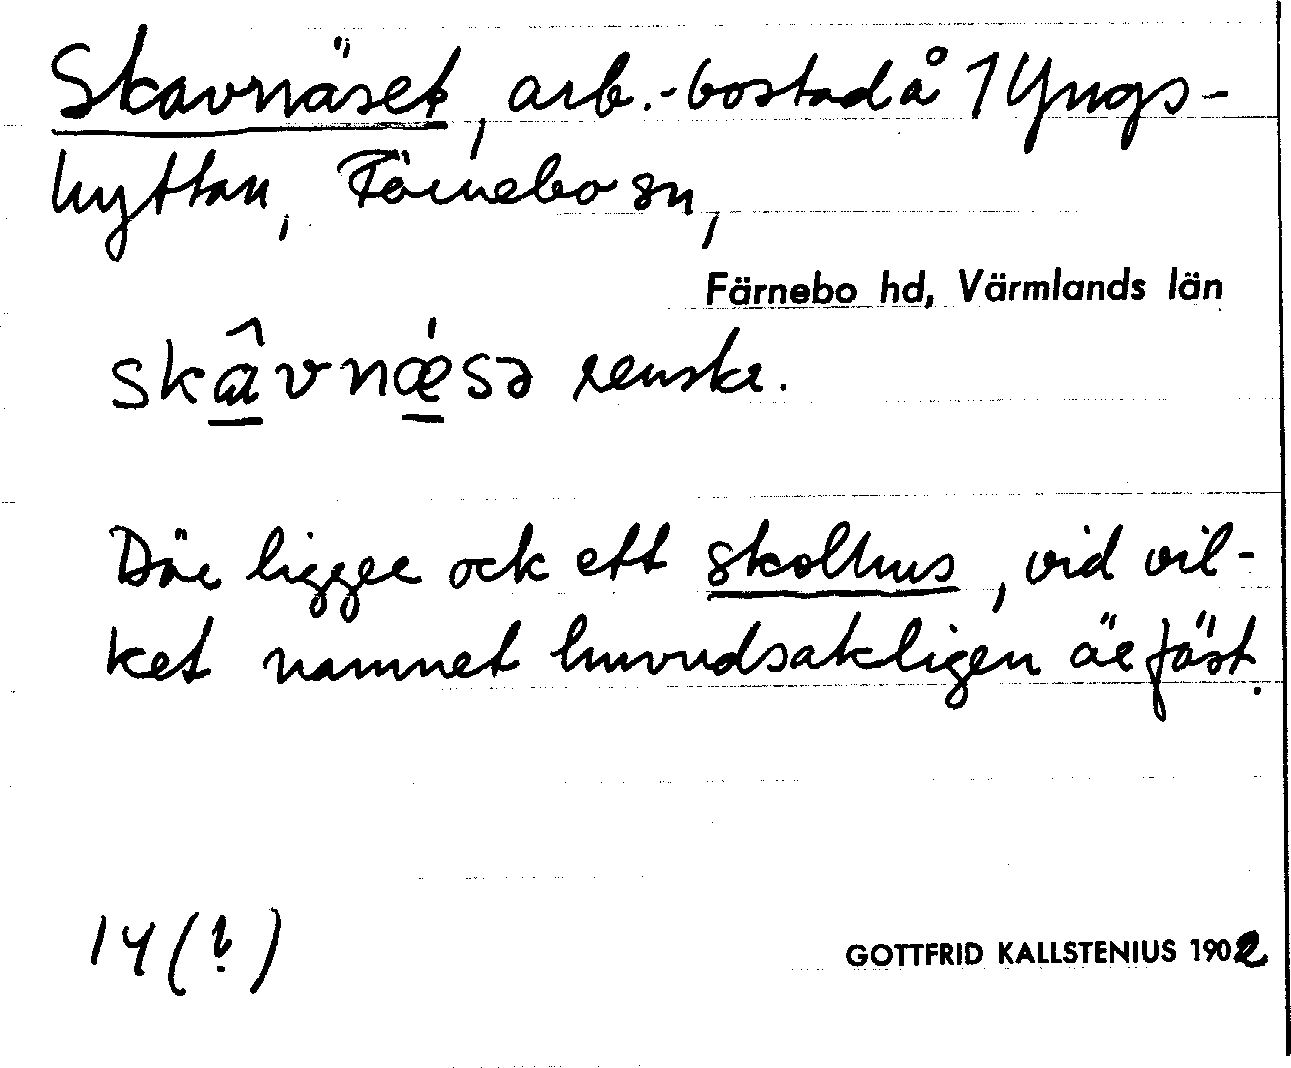 Skavnäset, arb.-bostad å 1 Yngs-
hyttan, Färnebo sn,
Färnebo hd, Värmlands län
skâvnǽsə renske.
Där ligger ock ett skolhus, vid vil-
ket namnet huvudsakligen är fäst.
14 (?)
GOTTFRID KALLSTENIUS 1902